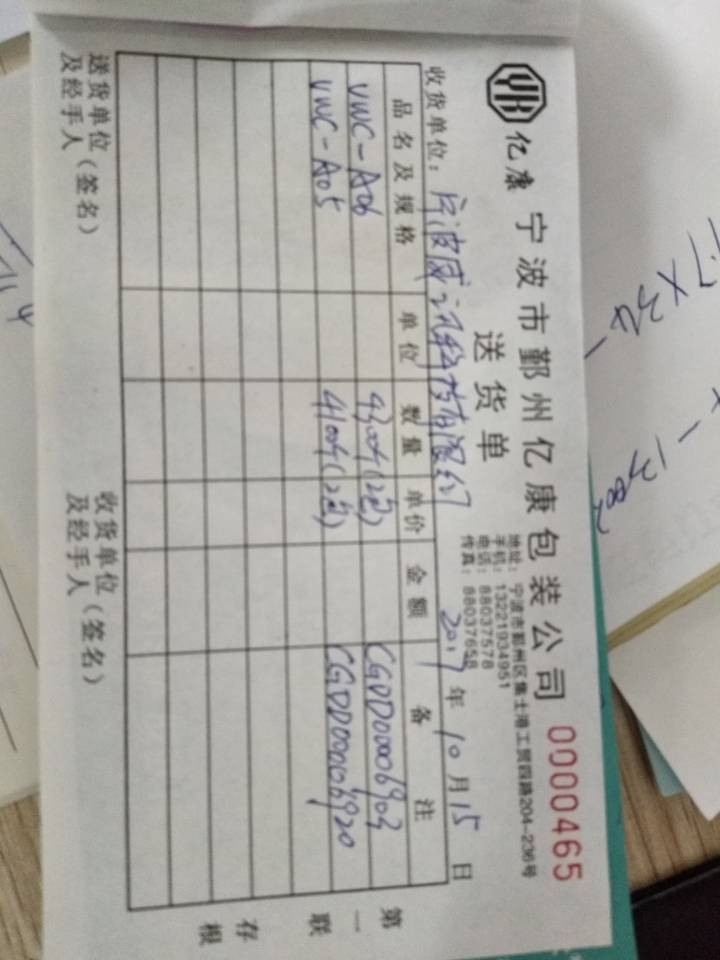 亿康 宁波市鄞州亿康包装公司 0000465
送货单
地址：宁波市鄞州区集士港工贸四路204-236号
手机：13221934951
电话：88037578
传真：88037658
收货单位：宁波威 科技有限公司 2017年10月15日
品名及规格 单位 数量 单价 金额 备注
VWC-A06 4300个(12包) CGDD0006903
VWC-A05 4100个(12包) CGDD0006920
第一联 存根
送货单位及经手人（签名） 收货单位及经手人（签名）